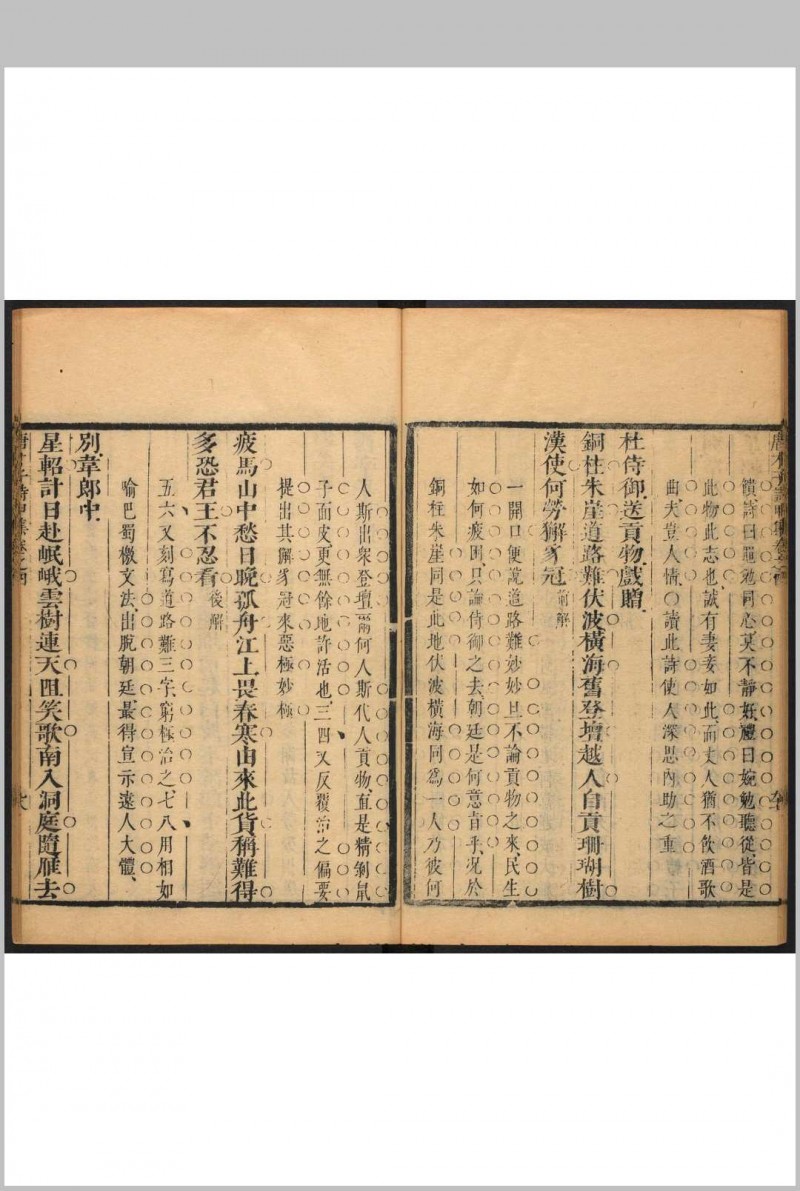 饋、詩曰、黽勉同心、莫不靜好、禮曰、婉勉聽從、皆是
此物此志也、誠有妻妾如此、而丈人猶不飲酒歌
曲、夫豈人情、○讀此詩、使人深思內助之重
杜侍御送貢物戲贈
銅柱朱崖道路難伏波橫海舊登壇越人自貢珊瑚樹
漢使何勞獬豸冠 前解
一開口便說道路難妙妙、且不論貢物之來、民生
如何疲困、只論侍御之去、朝廷是何意旨乎、況於
銅柱朱崖、同是此地、伏波橫海、同為一人、乃彼何
人斯、出眾登壇、爾何人斯、代人貢物、直是精剝鼠
子面皮、更無餘地許活也、三四又反覆治之、偏要
提出其獬豸冠來、惡極妙極
疲馬山中愁日晚孤舟江上畏春寒由來此貨稱難得
多恐君王不忍看 後解
五六又刻寫道路難三字、窮極治之、七八用相如
喻巴蜀檄文法、出脫朝廷、最得宣示遠人大體、
別韋郎中
星軺計日赴岷峨雲樹連天阻笑歌南入洞庭隨雁去